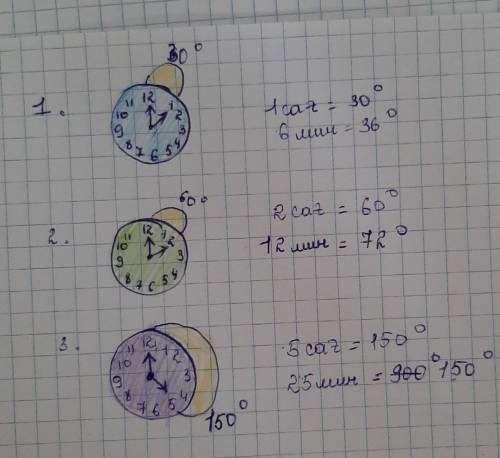 30°
1.
12 1 2 3 4 5 6 7 8 9 10 11
1 сағ = 30°
6 мин = 36°
60°
2.
12 1 2 3 4 5 6 7 8 9 10 11
2 сағ = 60°
12 мин = 72°
3.
12 1 2 3 4 5 6 7 8 9 10 11
5 сағ = 150°
25 мин = 900° 150°
150°